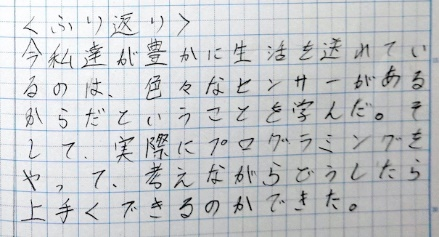 <ふり返り>
今私達が豊かに生活を送れてい
るのは、色々なセンサーがある
からだということを学んだ。そ
して、実際にプログラミングを
やって、考えながらどうしたら
上手くできるのかできた。